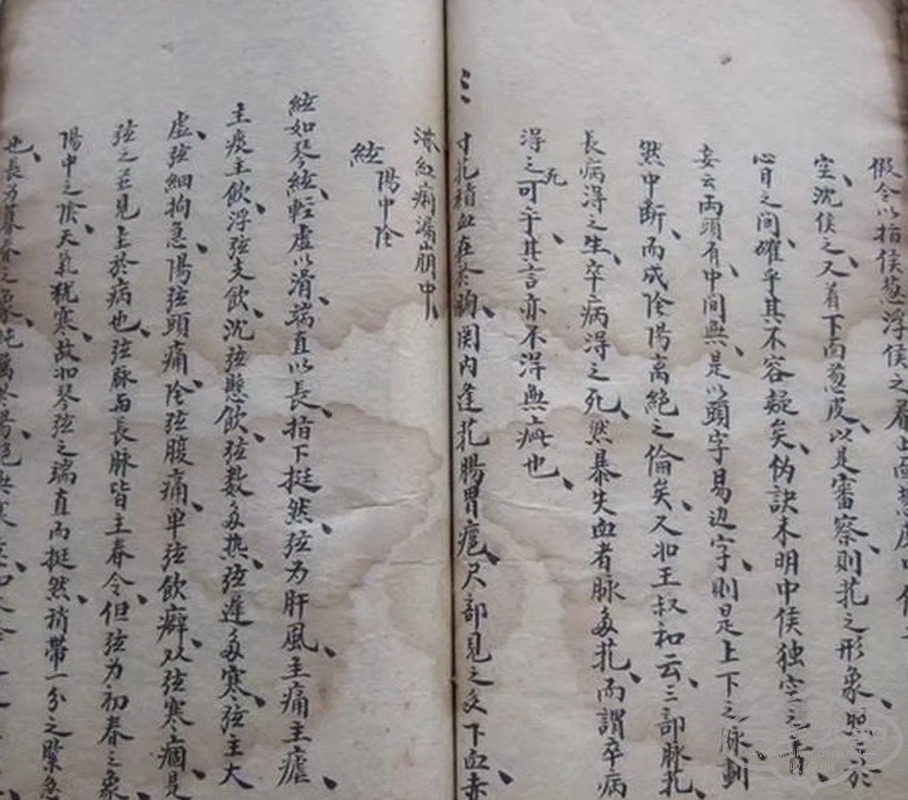 假令以指侯葱浮侯之着上面葱皮中
空沈侯之又着下面葱皮以是審察則芤之形象照
於心目之間確乎其不容疑矣偽訣未明中侯独空之旨
妄云両頭有中間無是以頭字易边字則是上下之脉劃
然中断而成陰陽离絶之倫矣又如王叔和云三部脉芤
長病得之生卒病得之死然暴失血者脉多芤而謂卒病
得之死可乎其言亦不得無病也
寸芤積血在於胸関内逢芤腸胃痈尺部見之多下血赤
淋红痢漏崩中
絃
陽中陰
絃如琴絃輕虚以滑端直以長指下挺然弦为肝風主痛主瘧
主痰主飲浮弦支飲沈弦懸飲弦数多热弦遲多寒弦主大
虚弦細拘急陽弦頭痛陰弦腹痛单弦飲癖双弦寒痼是
弦之並見主於病也弦脉与長脉皆主春令但弦为初春之象
陽中之陰天氣犹寒故如琴弦之端直而挺然稍帶一分之緊急
也長为暮春之象純属於陽絶無寒